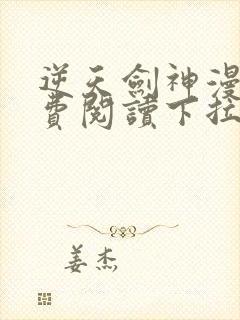 逆天劍神漫
費閱讀下拉
姜杰